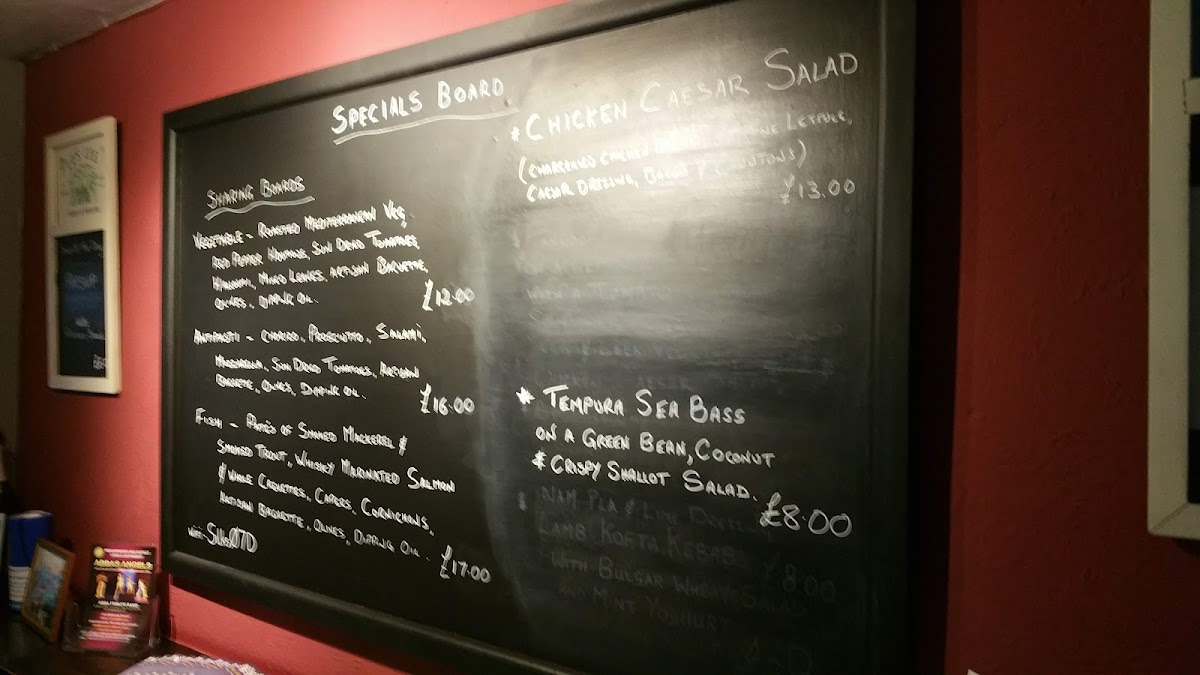 SPECIALS BOARD
SHARING BOARDS
VEGETABLE - ROASTED MEDITERRANEAN VEG,
RED PEPPER HOUMOUS, SUN DRIED TOMATOES,
HALLOUMI, MIXED LEAVES, ARTISAN BAGUETTE,
OLIVES, DIPPING OIL.
£12.00
ANTIPASTI - CHORIZO, PROSCIUTTO, SALAMI,
MOZZARELLA, SUN DRIED TOMATOES, ARTISAN
BAGUETTE, OLIVES, DIPPING OIL.
£16.00
FISH - PATÉS OF SMOKED MACKEREL &
SMOKED TROUT, WHISKY MARINATED SALMON
& WHOLE CREVETTES, CAPERS, CORNICHONS,
ARTISAN BAGUETTE, OLIVES, DIPPING OIL.
£17.00
* CHICKEN CAESAR SALAD
(CHARGRILLED CHICKEN LETTUCE,
CAESAR DRESSING, BACON & CROUTONS)
£13.00
* TEMPURA SEA BASS
ON A GREEN BEAN, COCONUT
& CRISPY SHALLOT SALAD.
£8.00
NAM PLA & LIME
LAMB KOFTA KEBAB
£8.00
WITH BULGAR WHEAT
AND MINT YOGHURT
ABBA'S ANGELS